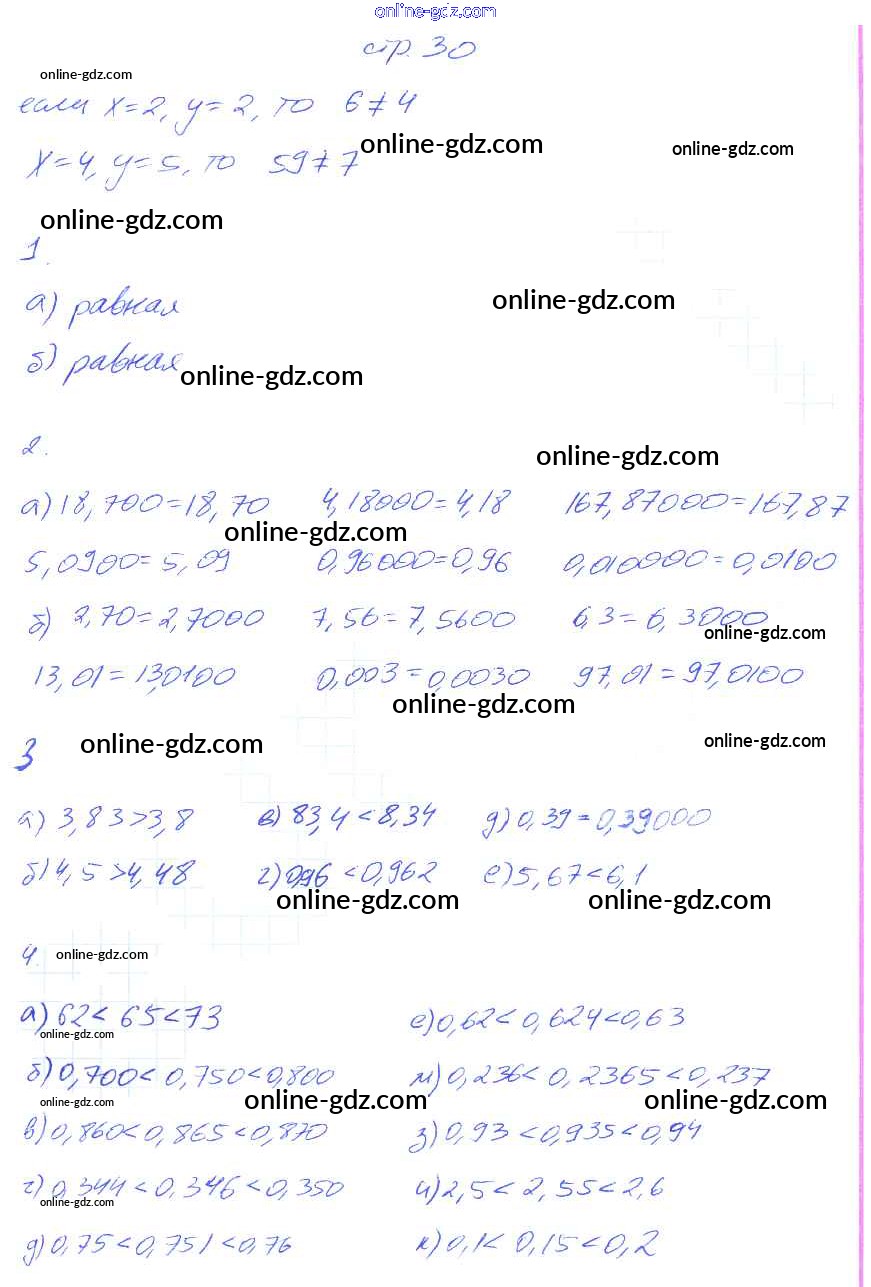 online-gdz.com
стр. 30
online-gdz.com
если x=2, y=2, то 6≠4
online-gdz.com
online-gdz.com
x=4, y=5, то 59≠7
online-gdz.com
1.
online-gdz.com
а) равная
б) равная
online-gdz.com
2.
online-gdz.com
а) 18,700=18,70 4,18000=4,18 167,87000=167,87
online-gdz.com
5,0900=5,09 0,96000=0,96 0,010000=0,0100
б) 2,70=2,7000 7,56=7,5600 6,3=6,3000
online-gdz.com
13,01=13,0100 0,003=0,0030 97,01=97,0100
online-gdz.com
3 online-gdz.com online-gdz.com
а) 3,83>3,8 в) 83,4<8,34 д) 0,39=0,39000
б) 4,5>4,48 г) 0,96<0,962 е) 5,67<6,1
online-gdz.com online-gdz.com
4. online-gdz.com
а) 62<65<73 е) 0,62<0,624<0,63
online-gdz.com
б) 0,700<0,750<0,800 м) 0,236<0,2365<0,237
online-gdz.com online-gdz.com online-gdz.com
в) 0,860<0,865<0,870 з) 0,93<0,935<0,94
г) 0,344<0,346<0,350 и) 2,5<2,55<2,6
online-gdz.com
д) 0,75<0,751<0,76 к) 0,1<0,15<0,2